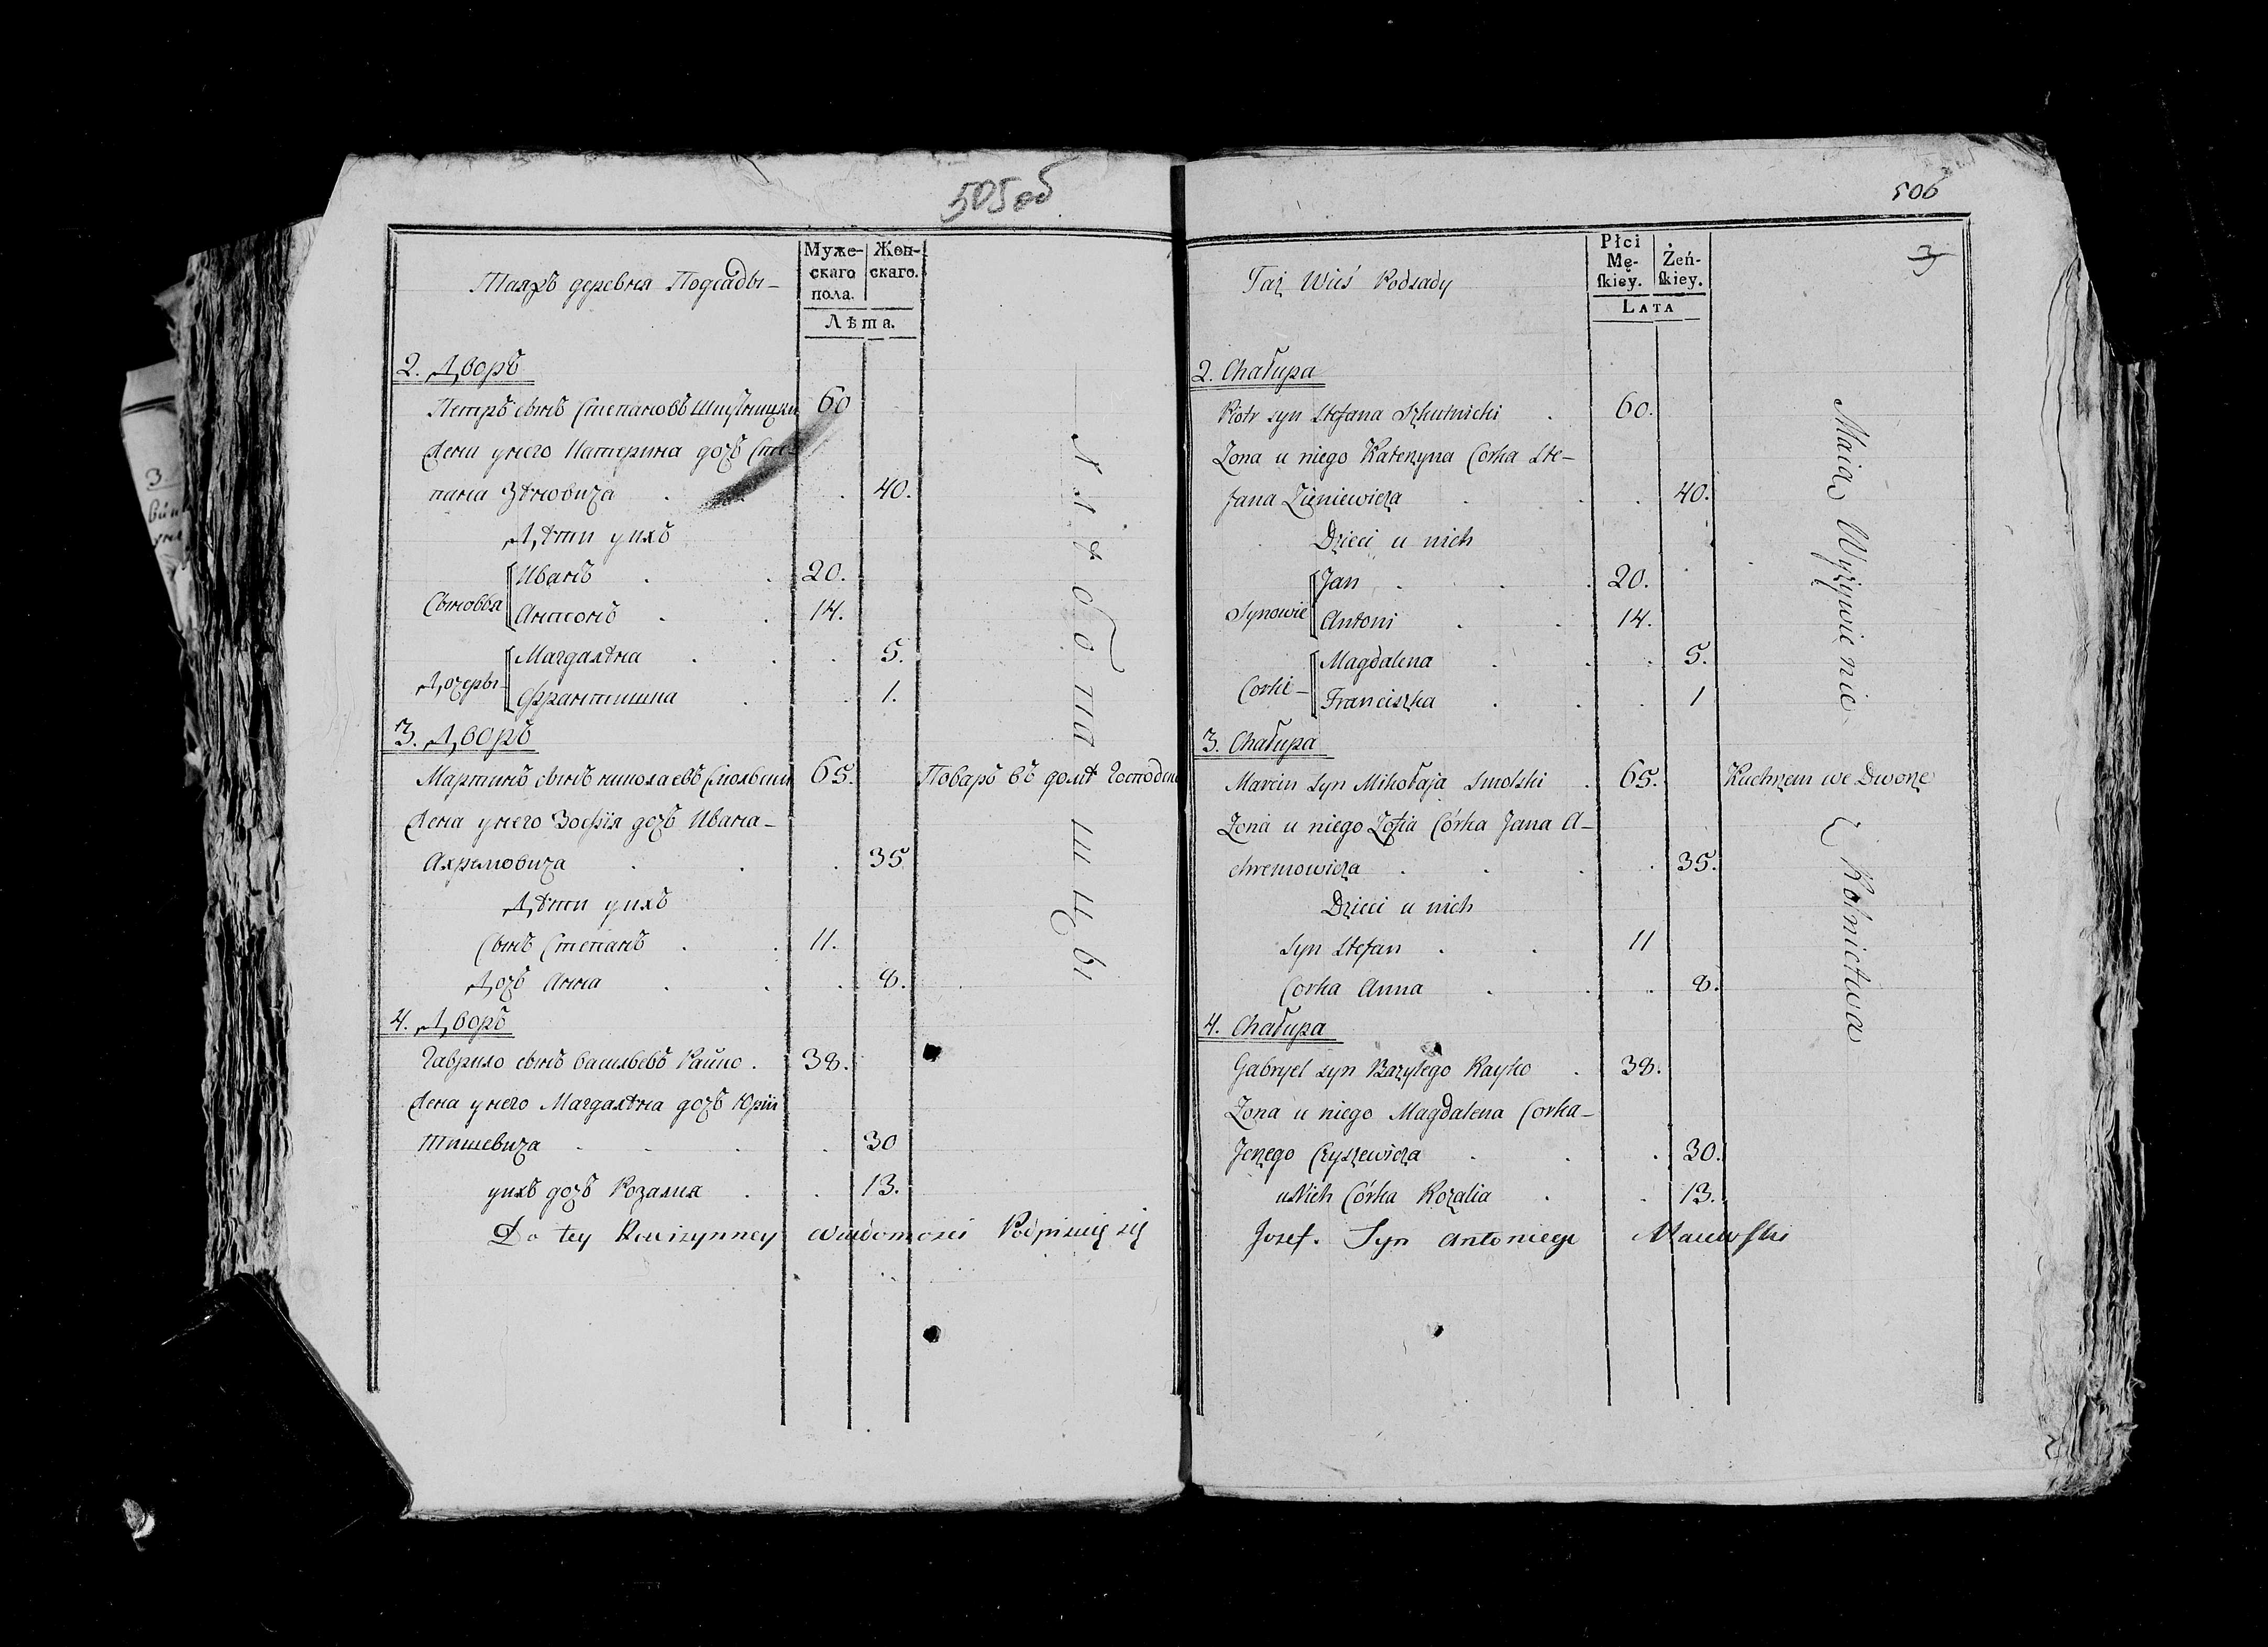 505об
Таяжъ деревня Подсады
Муже-
скаго
пола.
Жен-
скаго.
Лѣта.
2. Дворъ
Петръ сынъ Степановъ Шкутницки 60
Жена у него Катерина дочь Сте-
пана Зѣновича 40.
Дѣти у ихъ
Сыновья
Иванъ 20.
Антонъ 14.
Дочеры
Магдалѣна 5.
Франтишка 1.
3. Дворъ
Мартинъ сынъ николаевъ Смольски 65. Поваръ въ домѣ Господск
Жена у него Зофія дочь Ивана
Ахремовича 35
Дѣти у ихъ
Сынъ Степанъ 11.
Дочь Анна 8.
4. Дворъ
Гаврило сынъ Васильевъ Райко. 38.
Жена у него Магдалѣна дочь Юрiи
Тишевича 30
у ихъ дочь Розалия 13.
Do tey Rewizynney wiadomosci Podpisuię się
Хлѣбопашцы
506
3
Taż Wieś Podsady
Płci
Mę-
skiey.
Żeń-
skiey.
LATA
2. Chałupa
Piotr syn Stefana Szkutnicki 60.
Zona u niego Katerzyna Corka Ste-
fana Zieniewicza 40.
Dzieci u nich
Synowie
Jan 20.
Antoni 14.
Corki
Magdalena 5.
Franciszka 1
3. Chałupa
Marcin syn Mikołaja Smolski 65. Kuchzem we Dworze
Zona u niego Zofia Córka Jana A-
chremowicza 35.
Dzieci u nich
Syn Stefan 11
Corka Anna 8.
4. Chałupa
Gabryel syn Bazylego Rayko 38.
Zona u niego Magdalena Corka
Jerzego Czyszewicza 30.
u Nich Córka Rozalia 13.
Josef. Syn Antoniego
Maią Wyżywienie z Rolnictwa